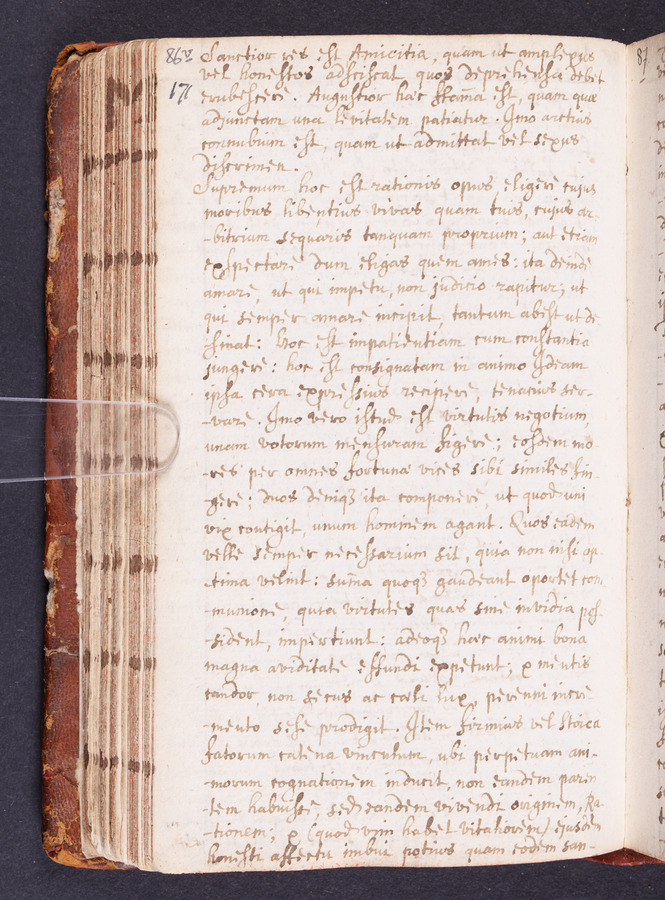 86v Sanctior res est Amicitia, quam ut amplexus
vel honestos adsciscat, quos deprehensa debet
171 erubescere. Augustior hæc flam̄a est, quam quæ
adjunctam una levitatem patiatur. Imo arctius
connubium est, quam ut admittat vel sexus
discrimen.
Supremum hoc est rationis opus, eligere cujus
moribus libentius vivas quam tuis, cujus ar-
-bitrium sequaris tanquam proprium; aut etiam
exspectare dum eligas quem ames: ita deinde
amare, ut qui impetu, non judicio rapitur; ut
qui semper amare incipit, tantum abest ut de
sinat: hoc est impatientiam cum constantia
jungere: hoc est consignatam in animo Ideam
ipsa cera expressius recipere, tenacius ser-
-vare. Imo vero istud est virtutis negotium,
unam votorum mensuram figere; eosdem mo-
-res per omnes fortunæ vices sibi similes fin-
gere; duos deniq3 ita componere, ut quod uni
vix contigit, unum hominem agant. Quos eadem
velle semper necessarium sit, quia non nisi op
-tima velint: sum̄a quoq3 gaudeant oportet com
-munione, quia virtutes quas sine invidia pos-
-sident, impertiunt: adeoq3 hæc animi bona
magna aviditate effundi expetunt; & mentis
candor, non secus ac cæli lux, perenni incre
-mento sese prodigit. Item firmius vel Stoica
fatorum catena vinculum, ubi perpetuam ani-
-morum cognationem inducit, non eandem paren
-tem habuisse, sed eandem vivendi originem, Ra-
-tionem; & (quod vim habet vitaliorem) ejusdem
honesti affectu imbui potius quam eodem san-
87